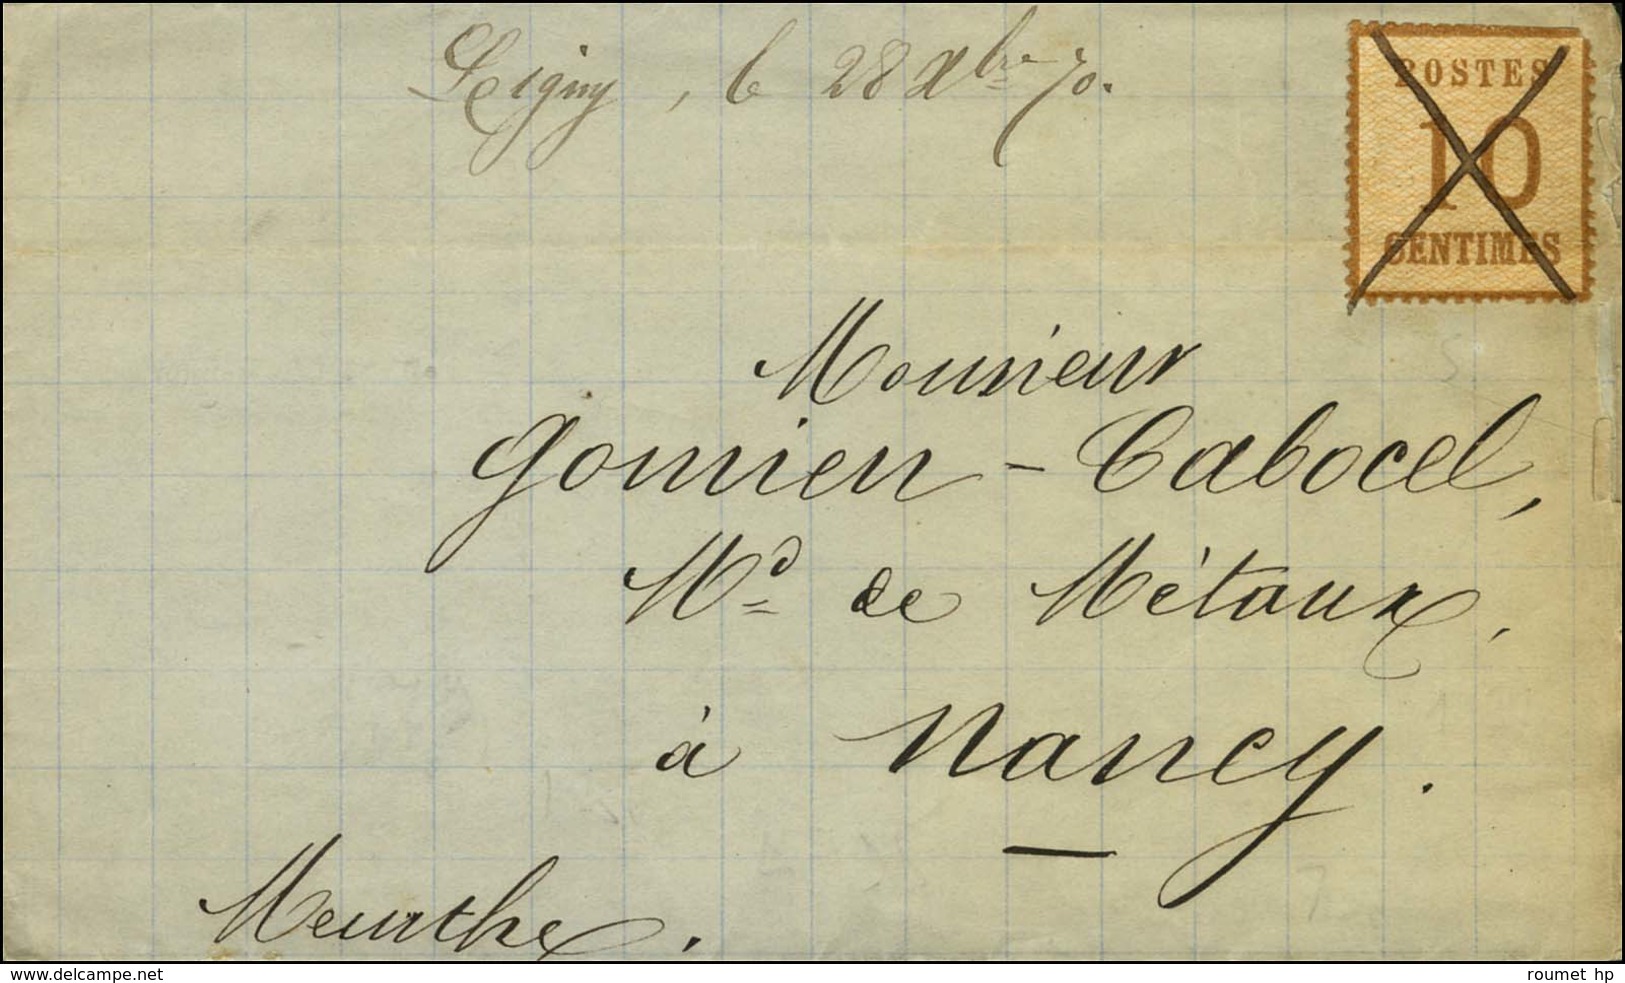 Leigny, le 28 Xbre 70.
POSTES
10
CENTIMES
Monsieur
Gomien - Cabocel,
Md de Métaux,
à Nancy.
Meurthe.
delcampe.net
roumet hp